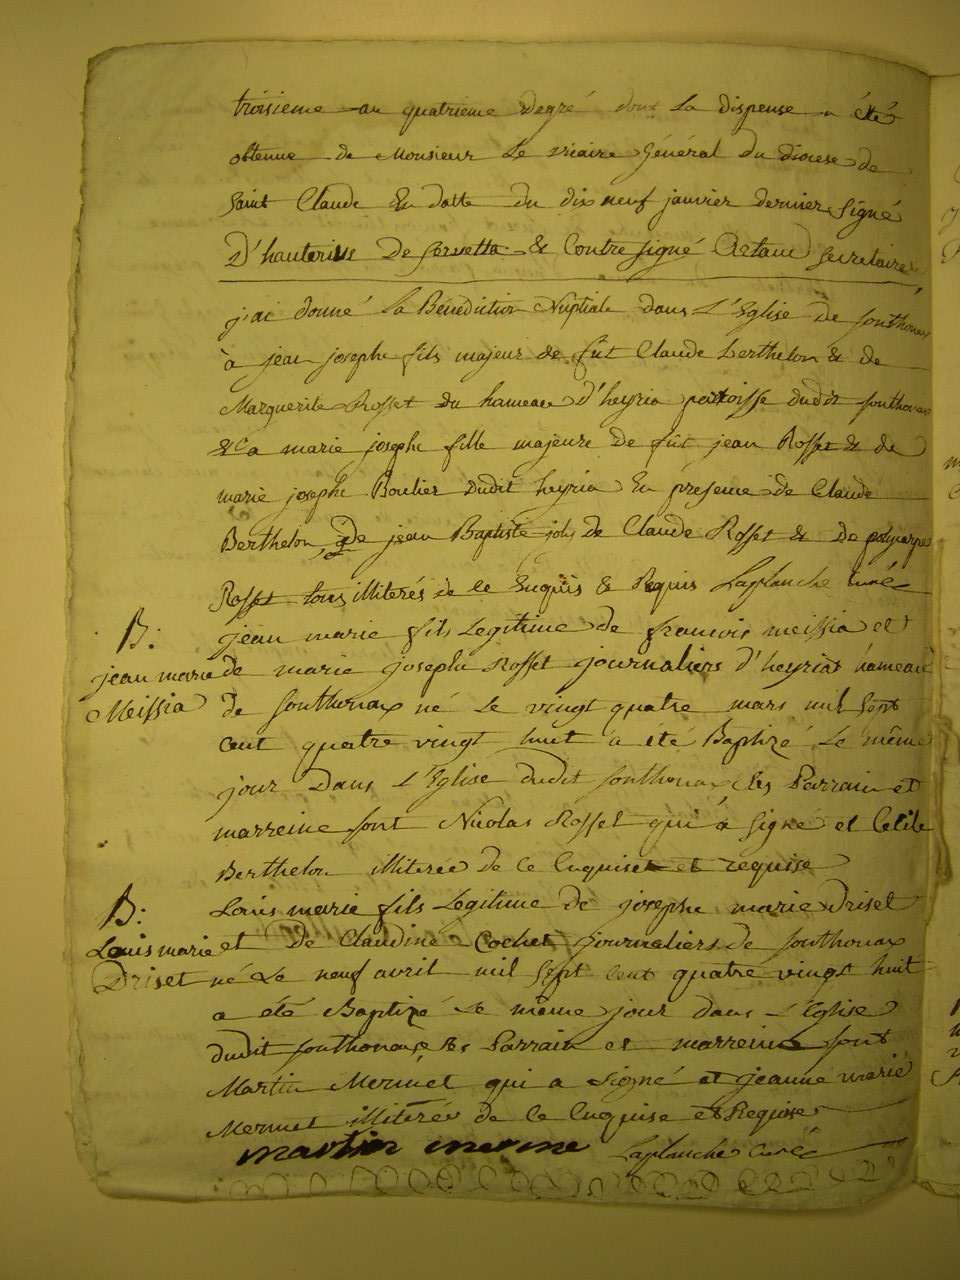 troisieme au quatrieme degré dont la dispense a été
obtenue de Monsieur le vicaire Général du diocese de
saint Claude En datte du dix neuf janvier dernier signé
D'hauterives De & Contre signé secretaire
j'ai donné la Bénédiction Nuptiale dans L'Eglise de sonthonax
à jean joseph fils majeur de fût Claude berthelon & de
Marguerite Rosset du hameau D'heyria paroisse dudit sonthonax
&c a marie josephe fille majeure de fût jean Rosset & de
marie josephe Boulier dudit heyria En présence de Claude
Berthelon de jean Baptiste joly de Claude Rosset & de polycarpe
Rosset tous illiterés de ce Enquis & Requis Laplanche curé
B:
jean marie
Meissia
jean marie fils Legitime de francois meissia et
de marie josephe Rosset journaliers d'heyriat hameau
de sonthonax né Le vingt quatre mars mil sept
cent quatre vingt huit a été Baptizé Le même
jour Dans L'Eglise dudit sonthonax Les Parrain et
marreine sont Nicolas Rosset qui a signé et Cecile
Berthelon illiterée de ce Enquise et requise
B:
Louis marie
Driset
Louis marie fils Legitime de josephe marie Driset
et De Claudine Cochet journaliers de sonthonax
né Le neuf avril mil sept cent quatre vingt huit
a été Baptizé Le même jour dans L'Eglise
dudit sonthonax Les Parrain et marreine sont
Martin Mermet qui a signé et jeanne marie
Mermet illiterée de ce Enquise et Requise
martin merme Laplanche curé